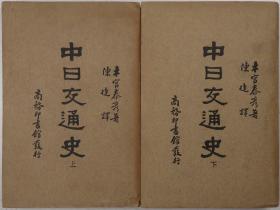 木宮泰彥著
陳捷譯
中日交通史
上
商務印書館發行
木宮泰彥著
陳捷譯
中日交通史
下
商務印書館發行